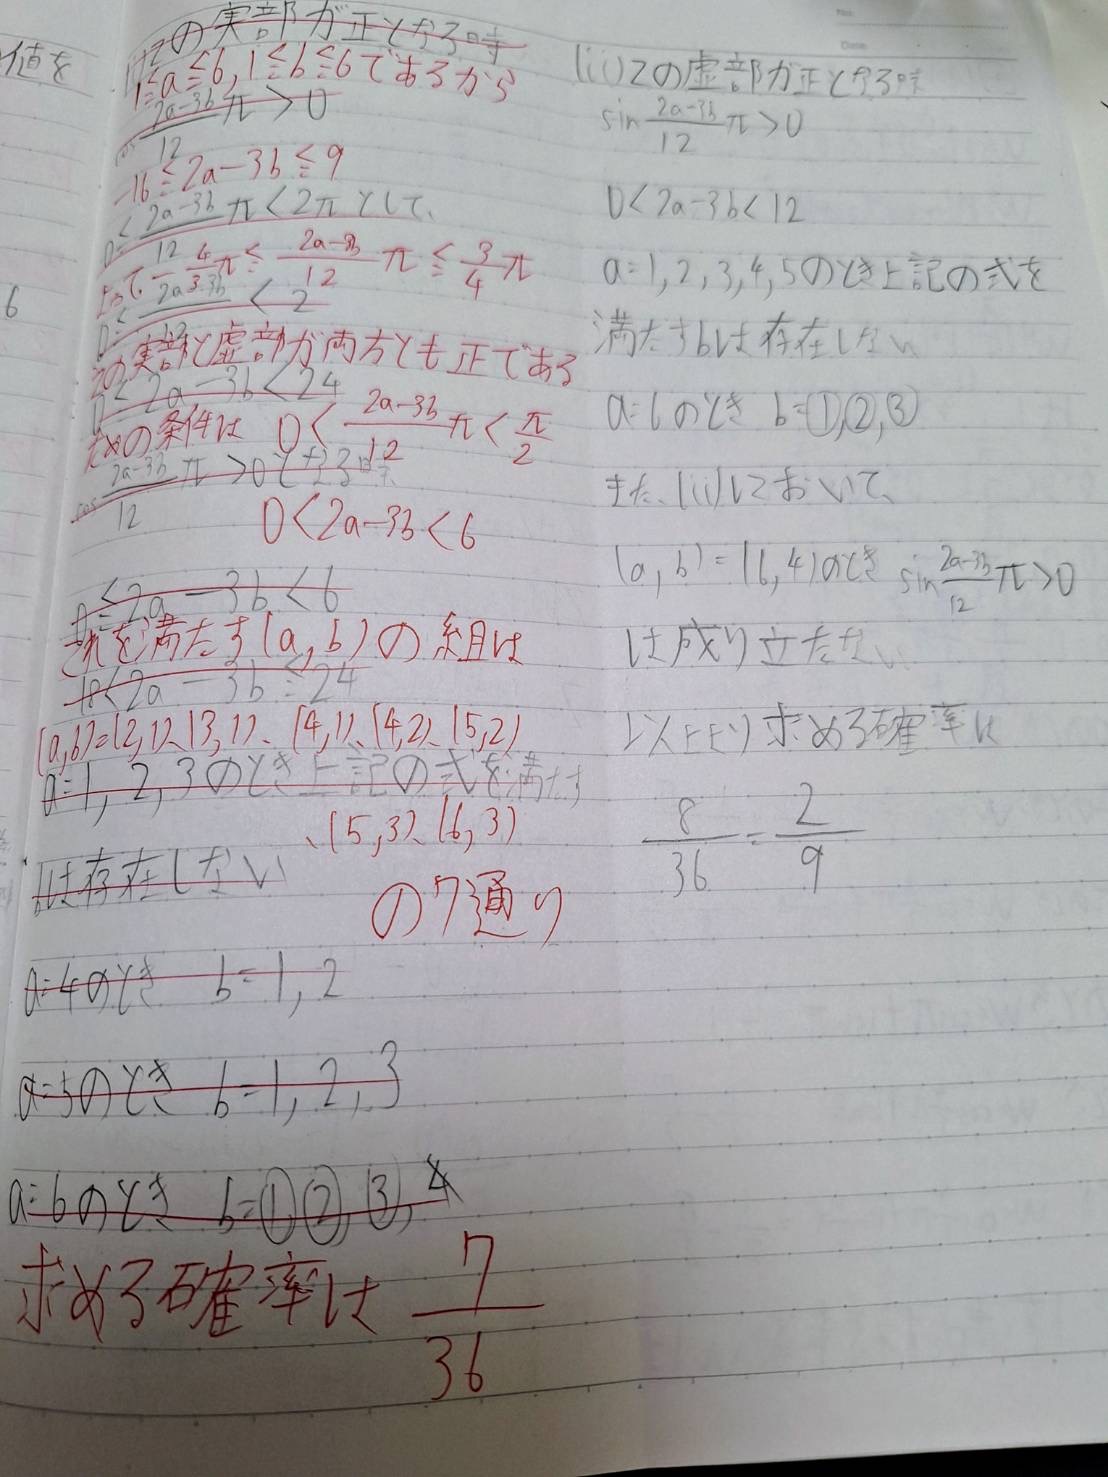 値を
6
(i)zの実部が正となる時
1≦a≦6, 1≦b≦6であるから
cos 2a-3b/12 π > 0
-16≦2a-3b≦9
0≦ 2a-3b/12 π < 2π として、
よって -4/3π ≦ 2a-3b/12 π ≦ 3/4 π
0≦ 2a-3b/12 < 2
zの実部と虚部が両方とも正である
0≦2a-3b<24
ための条件は 0< 2a-3b/12 π < π/2
cos 2a-3b/12 π >0となる時、
0<2a-3b<6
0≦2a-3b<6
これを満たす(a,b)の組は
18<2a-3b≦24
(a,b)=(2,1)、(3,1)、(4,1)、(4,2)、(5,2)
a=1, 2, 3のとき上記の式を満たす
、(5,3)、(6,3)
bは存在しない
の7通り
a=4のとき b=1, 2
a=5のとき b=1, 2, 3
a=6のとき b=①,②,③, 4
求める確率は 7/36
(ii)zの虚部が正となる時
sin 2a-3b/12 π > 0
0<2a-3b<12
a=1, 2, 3, 4, 5のとき上記の式を
満たすbは存在しない
a=6のとき b=①,②,③
また、(ii)において、
(a, b)=(6, 4)のとき sin 2a-3b/12 π>0
は成り立たない、
以上より求める確率は
8/36 = 2/9